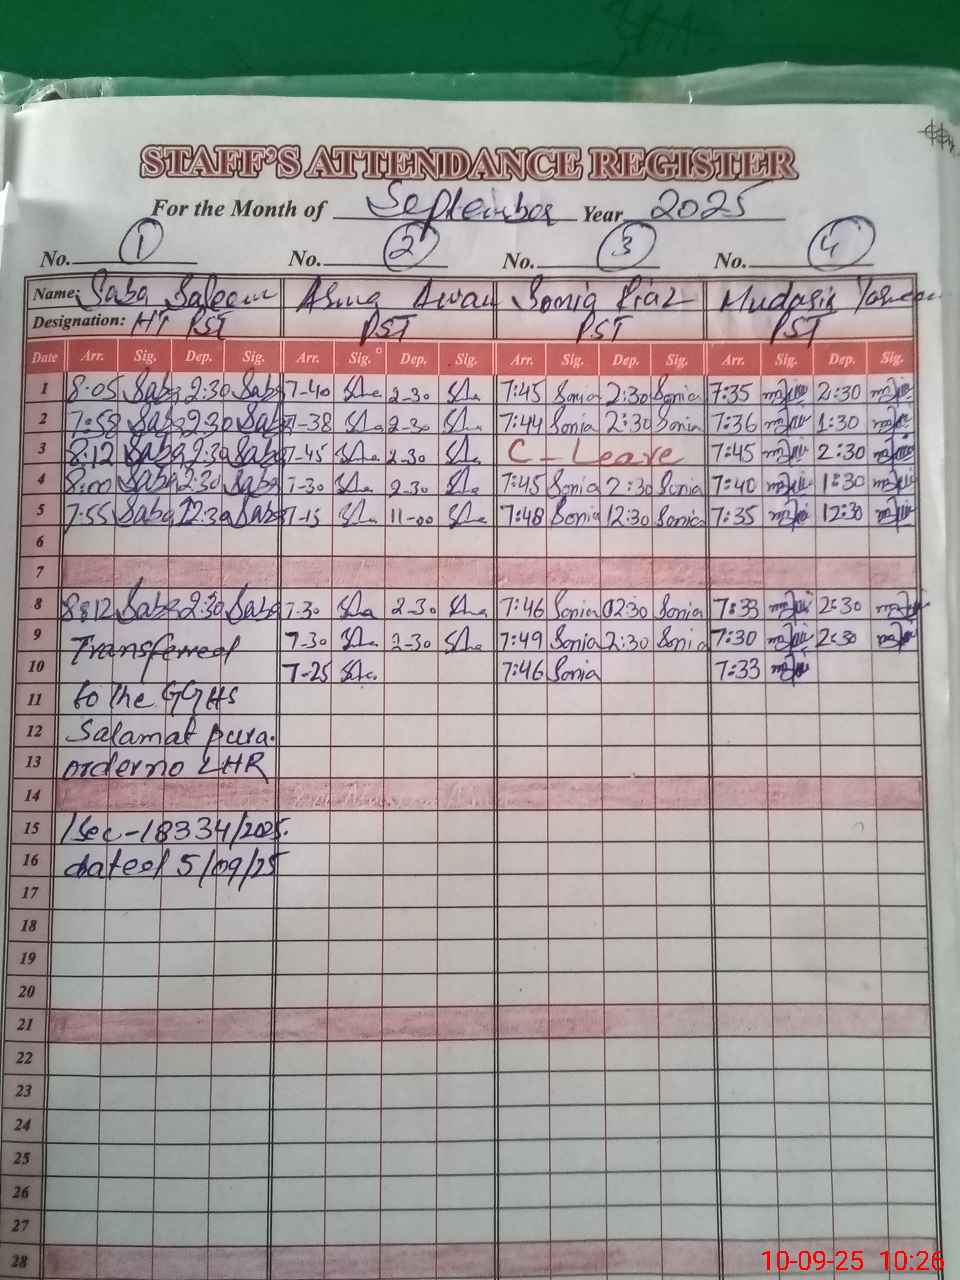 STAFF'S ATTENDANCE REGISTER
For the Month of September Year 2025
No. 1 No. 2 No. 3 No. 4
Name: Saba Saleem Asma Awan Sonia Riaz Mudasir
Designation: HT PST PST PST PST
Date Arr. Sig. Dep. Sig. Arr. Sig. Dep. Sig. Arr. Sig. Dep. Sig. Arr. Sig. Dep. Sig.
1 8:05 Saba 2:30 Saba 7-40 2-30 7:45 Sonia 2:30 Sonia 7:35 2:30
2 7:58 Saba 2:30 Saba 7-38 2-30 7:44 Sonia 2:30 Sonia 7:36 1:30
3 8:12 Saba 2:30 Saba 7-45 2-30 C - Leave 7:45 2:30
4 8:00 Saba 2:30 Saba 7-30 2-30 7:45 Sonia 2:30 Sonia 7:40 1:30
5 7:55 Saba 12:30 Saba 7-15 11-00 7:48 Sonia 12:30 Sonia 7:35 12:30
6
7
8 8:12 Saba 2:30 Saba 7-30 2-30 7:46 Sonia 02:30 Sonia 7:33 2:30
9 Transferred 7-30 2-30 7:49 Sonia 2:30 Sonia 7:30 2:30
10 7-25 7:46 Sonia 7:33
11 to the GGHS
12 Salamat pura.
13 order no LHR
14
15 /Sec-18334/2025.
16 dated 5/09/25
17
18
19
20
21
22
23
24
25
26
27
28
10-09-25 10:26